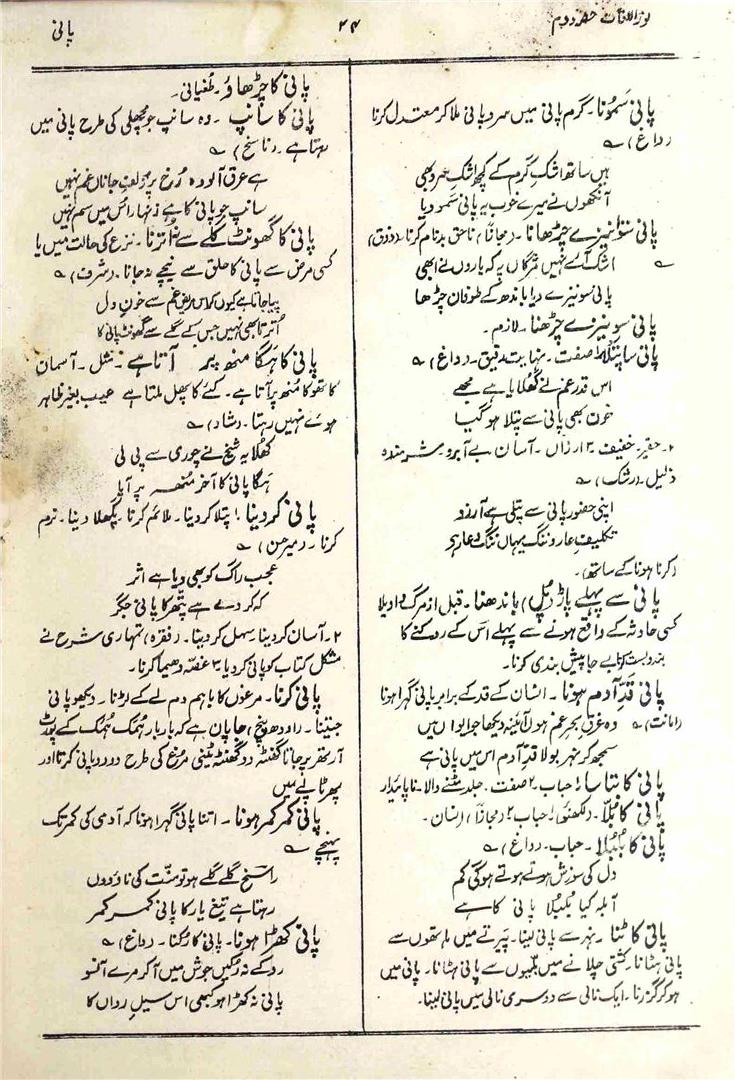 نور اللغات حصہ دوم
۲۴
پانی
پانی سَمونا۔ گرم پانی میں سرد پانی ملا کر معتدل کرنا
(داغ) ؎
ہیں ساتھ اشکِ گرم کے کچھ اشکِ سرد بھی
آنکھوں نے میرے خوب یہ پانی سَمو دیا
پانی سَوا نیزے چڑھانا۔ (مجازاً) ناحق بدنام کرنا۔ (ذوق)
؎ اشک آئے نہیں مژگاں پہ کہ یاروں نے ابھی
پانی سو نیزے دیا باندھ کے طوفان چڑھا
پانی سو نیزے چڑھنا۔ لازم۔
پانی سا پتلا۔ صفت۔ نہایت رقیق۔ (داغ) ؎
اس قدر غم نے گھلایا ہے مجھے
خون بھی پانی سے پتلا ہو گیا
۲۔ حقیر۔ خفیف ۳ ارزاں۔ آسان بے آبرو۔ شرمندہ
ذلیل۔ (رشک) ؎
اپنی حضور پانی سے پتلی ہے آرزو
تکلیفِ عار و ننگ یہاں ننگ و عار ہے
(کرنا ہونا کے ساتھ)۔
پانی سے پہلے پاڑ (پل) باندھنا۔ قبل از مرگ واویلا
کسی حادثہ کے واقع ہونے سے پہلے اس کے روکنے کا
بندوبست کرنا بے جا پیش بندی کرنا۔
پانی قدِّ آدم ہونا۔ انسان کے قد کے برابر پانی گہرا ہونا
(امانت) ؎ وہ غرقِ بحرِ غم ہوں آئینہ دیکھا جو ابوا ں میں
سمجھ کر نہر بولا قدِّ آدم اس میں پانی ہے
پانی کا بتاسا۔ ۱ حباب۔ ۲ صفت۔ جلد مٹنے والا۔ ناپائدار
پانی کا بُلّا۔ (لکھنؤ) ۱ حباب ۲ (مجازاً) انسان۔
پانی کا بُلبُلا۔ حباب۔ (داغ) ؎
دل کی سوزش ہوتے ہوتے ہوگی کم
آبلہ کیا بُلبُلا پانی کا ہے
پانی کاٹنا۔ نہر سے پانی لینا۔ پَیرتے میں ہاتھوں سے
پانی ہٹانا۔ کشتی چلانے میں بلّیوں سے پانی ہٹانا۔ پانی میں
ہو کر گزرنا۔ ایک نالی سے دوسری نالی میں پانی لینا۔
پانی کا چڑھاؤ۔ طُغیانی۔
پانی کا سانپ۔ وہ سانپ جو مچھلی کی طرح پانی میں
رہتا ہے۔ (ناسخ) ؎
ہے عرق آلودہ رُخ پر زلفِ جاناں غم نہیں
سانپ جو پانی کا ہے زنہار اس میں سم نہیں
پانی کا گھونٹ گلے سے نہ اُترنا۔ نزع کی حالت میں یا
کسی مرض سے پانی کا حلق سے نیچے نہ جانا۔ (شرف) ؎
پیا جاتا ہے کیوں کر اس مریضِ غم سے خونِ دل
اُترتا بھی نہیں جس کے گلے سے گھونٹ پانی کا
پانی کا ہگا منھ پر آتا ہے۔ مثل۔ آسمان
کا تھوکا منھ پر آتا ہے۔ کئے کا پھل ملتا ہے عیب بغیر ظاہر
ہوئے نہیں رہتا۔ (شاد) ؎
کھلا یہ شیخ نے چوری سے پی لی
ہگا پانی کا آخر منھ پر آیا
پانی کر دینا۔ ۱ پتلا کر دینا۔ ملائم کرنا۔ پگھلا دینا۔ نرم
کرنا۔ (میر حسن) ؎
عجب راگ کو بھی دیا ہے اثر
کہ کر دے ہے پتھر کا پانی جگر
۲۔ آسان کر دینا۔ سہل کر دینا۔ (فقرہ) تمہاری شرح نے
مشکل کتاب کو پانی کر دیا ۳ غصّہ دھیما کرنا۔
پانی کرنا۔ مرغوں کا باہم دم لے کے لڑنا۔ دیکھو پانی
جیتنا۔ (اودھ پنچ) جاپان ہے کہ بار بار ہُمک ہُمک کے پورٹ
آرتھر پر جانا گھنٹہ دو گھنٹہ ٹینی مرغ کی طرح دو دو پانی کرتا اور
پھر ٹاپے میں
پانی کمر کمر ہونا۔ اتنا پانی گہرا ہونا کہ آدمی کی کمر تک
پہنچے ؎
راسخ گلے گلے ہو تو منّت کی ناؤ دوں
رہتا ہے تیغِ یار کا پانی کمر کمر
پانی کھڑا ہونا۔ پانی کا رُکنا۔ (داغ) ؎
روکے نہ رکیں جوش میں آ کر مرے آنسو
پانی نہ کھڑا ہو کبھی اس سیلِ رواں کا